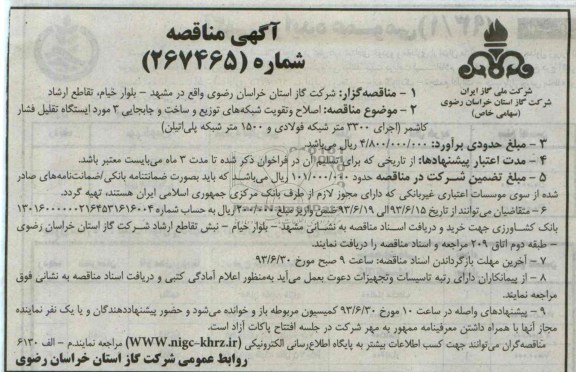 آگهی مناقصه
شماره (۲۶۷۴۶۵)
شرکت ملی گاز ایران
شرکت گاز استان خراسان رضوی
(سهامی خاص)
۱ - مناقصه‌گزار: شرکت گاز استان خراسان رضوی واقع در مشهد - بلوار خیام، تقاطع ارشاد
۲ - موضوع مناقصه: اصلاح وتقویت شبکه‌های توزیع و ساخت و جابجایی ۳ مورد ایستگاه تقلیل فشار
کاشمر (اجرای ۳۳۰۰ متر شبکه فولادی و ۱۵۰۰ متر شبکه پلی‌اتیلن)
۳ - مبلغ حدودی برآورد: ۴/۸۰۰/۰۰۰/۰۰۰ ریال می‌باشد.
۴ - مدت اعتبار پیشنهادها: از تاریخی که برای تسلیم آن در فراخوان ذکر شده تا مدت ۳ ماه می‌بایست معتبر باشد.
۵ - مبلغ تضمین شرکت در مناقصه حدود ۱۰۱/۰۰۰/۰۰۰ ریال می‌باشد که باید بصورت ضمانتنامه بانکی/ضمانت‌نامه‌های صادر
شده از سوی موسسات اعتباری غیربانکی که دارای مجوز لازم از طرف بانک مرکزی جمهوری اسلامی ایران هستند، تهیه گردد.
۶ - متقاضیان می‌توانند از تاریخ ۹۳/۶/۱۵ الی ۹۳/۶/۱۹ ضمن واریز مبلغ ۲۰۰/۰۰۰ ریال به حساب شماره
بانک کشاورزی جهت خرید و دریافت اسناد مناقصه به نشانی مشهد - بلوار خیام - نبش تقاطع ارشاد شرکت گاز استان خراسان رضوی
- طبقه دوم اتاق ۲۰۹ مراجعه و اسناد مناقصه را دریافت نمایند.
۷ - آخرین مهلت بازگرداندن اسناد مناقصه: ساعت ۹ صبح مورخ ۹۳/۶/۳۰
۸ - از پیمانکاران دارای رتبه تاسیسات وتجهیزات دعوت بعمل می‌آید به‌منظور اعلام آمادگی کتبی و دریافت اسناد مناقصه به نشانی فوق
مراجعه نمایند.
۹ - پیشنهادهای واصله در ساعت ۱۰ مورخ ۹۳/۶/۳۰ کمیسیون مربوطه باز و خوانده می‌شود و حضور پیشنهاددهندگان و یا یک نفر نماینده
مجاز آنها با همراه داشتن معرفینامه ممهور به مهر شرکت در جلسه افتتاح پاکات آزاد است.
مناقصه‌گران می‌توانند جهت کسب اطلاعات بیشتر به پایگاه اطلاع‌رسانی الکترونیکی (WWW.nigc-khrz.ir) مراجعه نمایند.م - الف ۶۱۳۰
روابط عمومی شرکت گاز استان خراسان رضوی